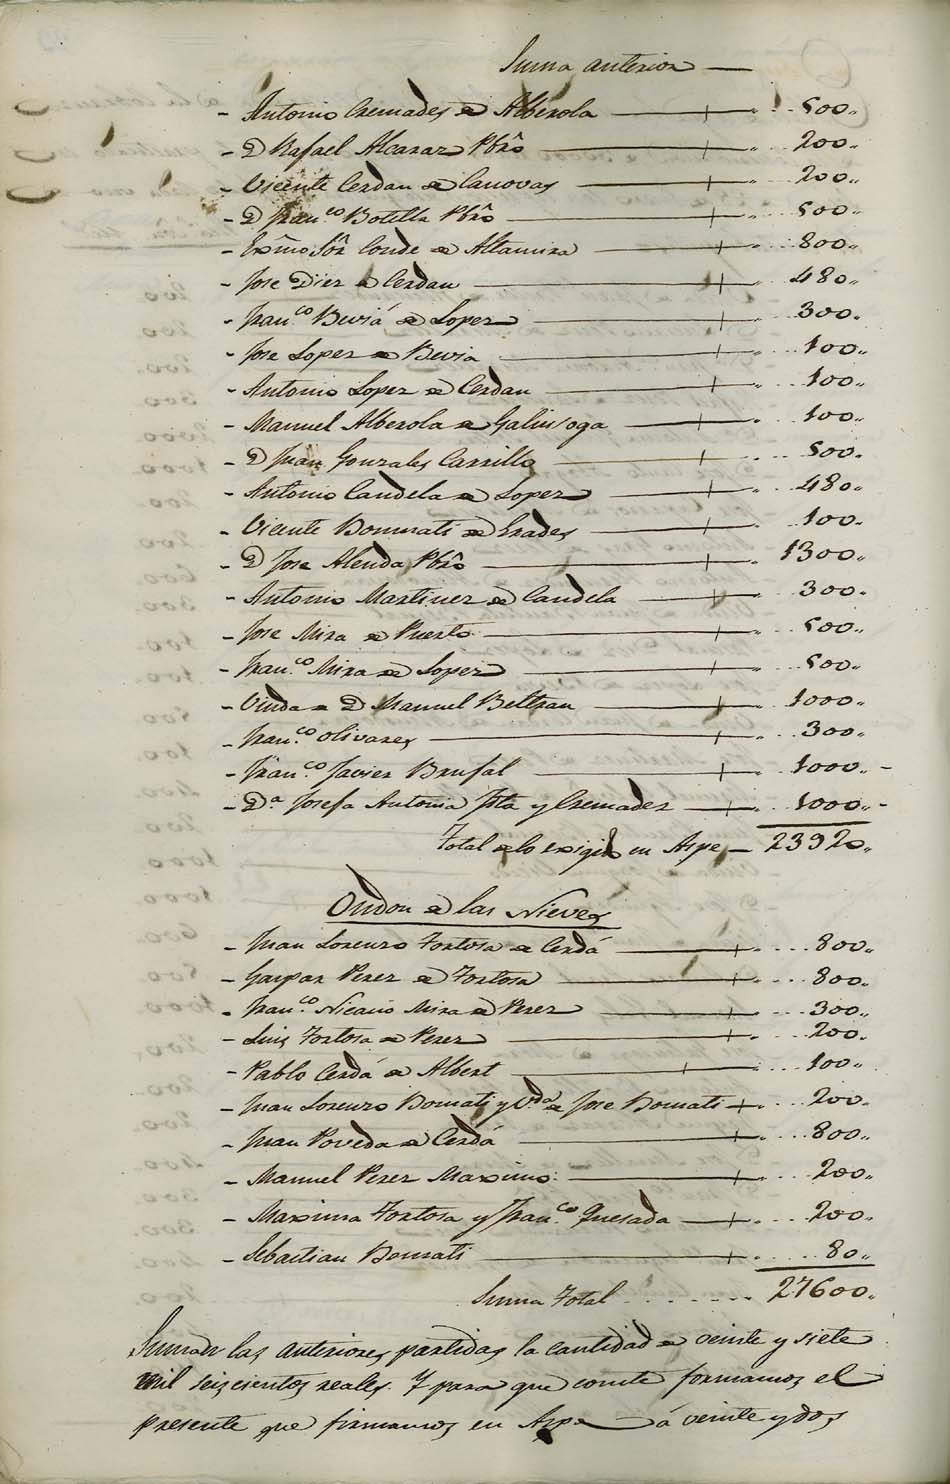 Suma anterior —
- Antonio Cremades de Alberola — " 500 "
- D Rafael Alcaraz Pbrô — " 200 "
- Vicente Cerdan de Canovas — " 200 "
- D Fran.co Botella Pbrô — " 500 "
- Exîmo Sôr Conde de Altamira — " 800 "
- Jose Diez de Cerdan — " 480 "
- Fran.co Beviá de Lopez — " 300 "
- Jose Lopez de Bevia — " 100 "
- Antonio Lopez de Cerdan — " 100 "
- Manuel Alberola de Galinsoga — " 100 "
- D Juan Gonzales Carrillo — " 500 "
- Antonio Candela de Lopez — " 480 "
- Vicente Bonmati de Erades — " 100 "
- D Jose Alenda Pbrô — " 1300 "
- Antonio Martinez de Candela — " 300 "
- Jose Mira de Puerto — " 500 "
- Fran.co Mira de Lopez — " 500 "
- Viuda de D Manuel Beltran — " 1000 "
- Fran.co Olivares — " 300 "
- Fran.co Javier Brufal — " 1000 " -
- D.a Josefa Antonia Pta y Cremades — " 1000 " -
Total de lo exigido en Aspe — 23920 "
Ondon de las Nieves
- Juan Lorenzo Tortosa de Cerdá — " 800 "
- Gaspar Perez de Tortosa — " 800 "
- Fran.co Nicasio Mira de Perez — " 300 "
- Luis Tortosa de Perez — " 200 "
- Pablo Cerdá de Albert — " 100 "
- Juan Lorenzo Bonmati y V.da de Jose Bonmati — " 200 "
- Juan Poveda de Cerdá — " 800 "
- Manuel Perez Maximo — " 200 "
- Maxima Tortosa y Fran.co Quesada — " 200 "
- Sebastian Bonmati — " 80 "
Suma total . . . . . . . 27600 "
Suman las anteriores partidas la cantidad de veinte y siete
mil seiscientos reales. Y para que conste formamos el
presente que firmamos en Aspe á veinte y dos